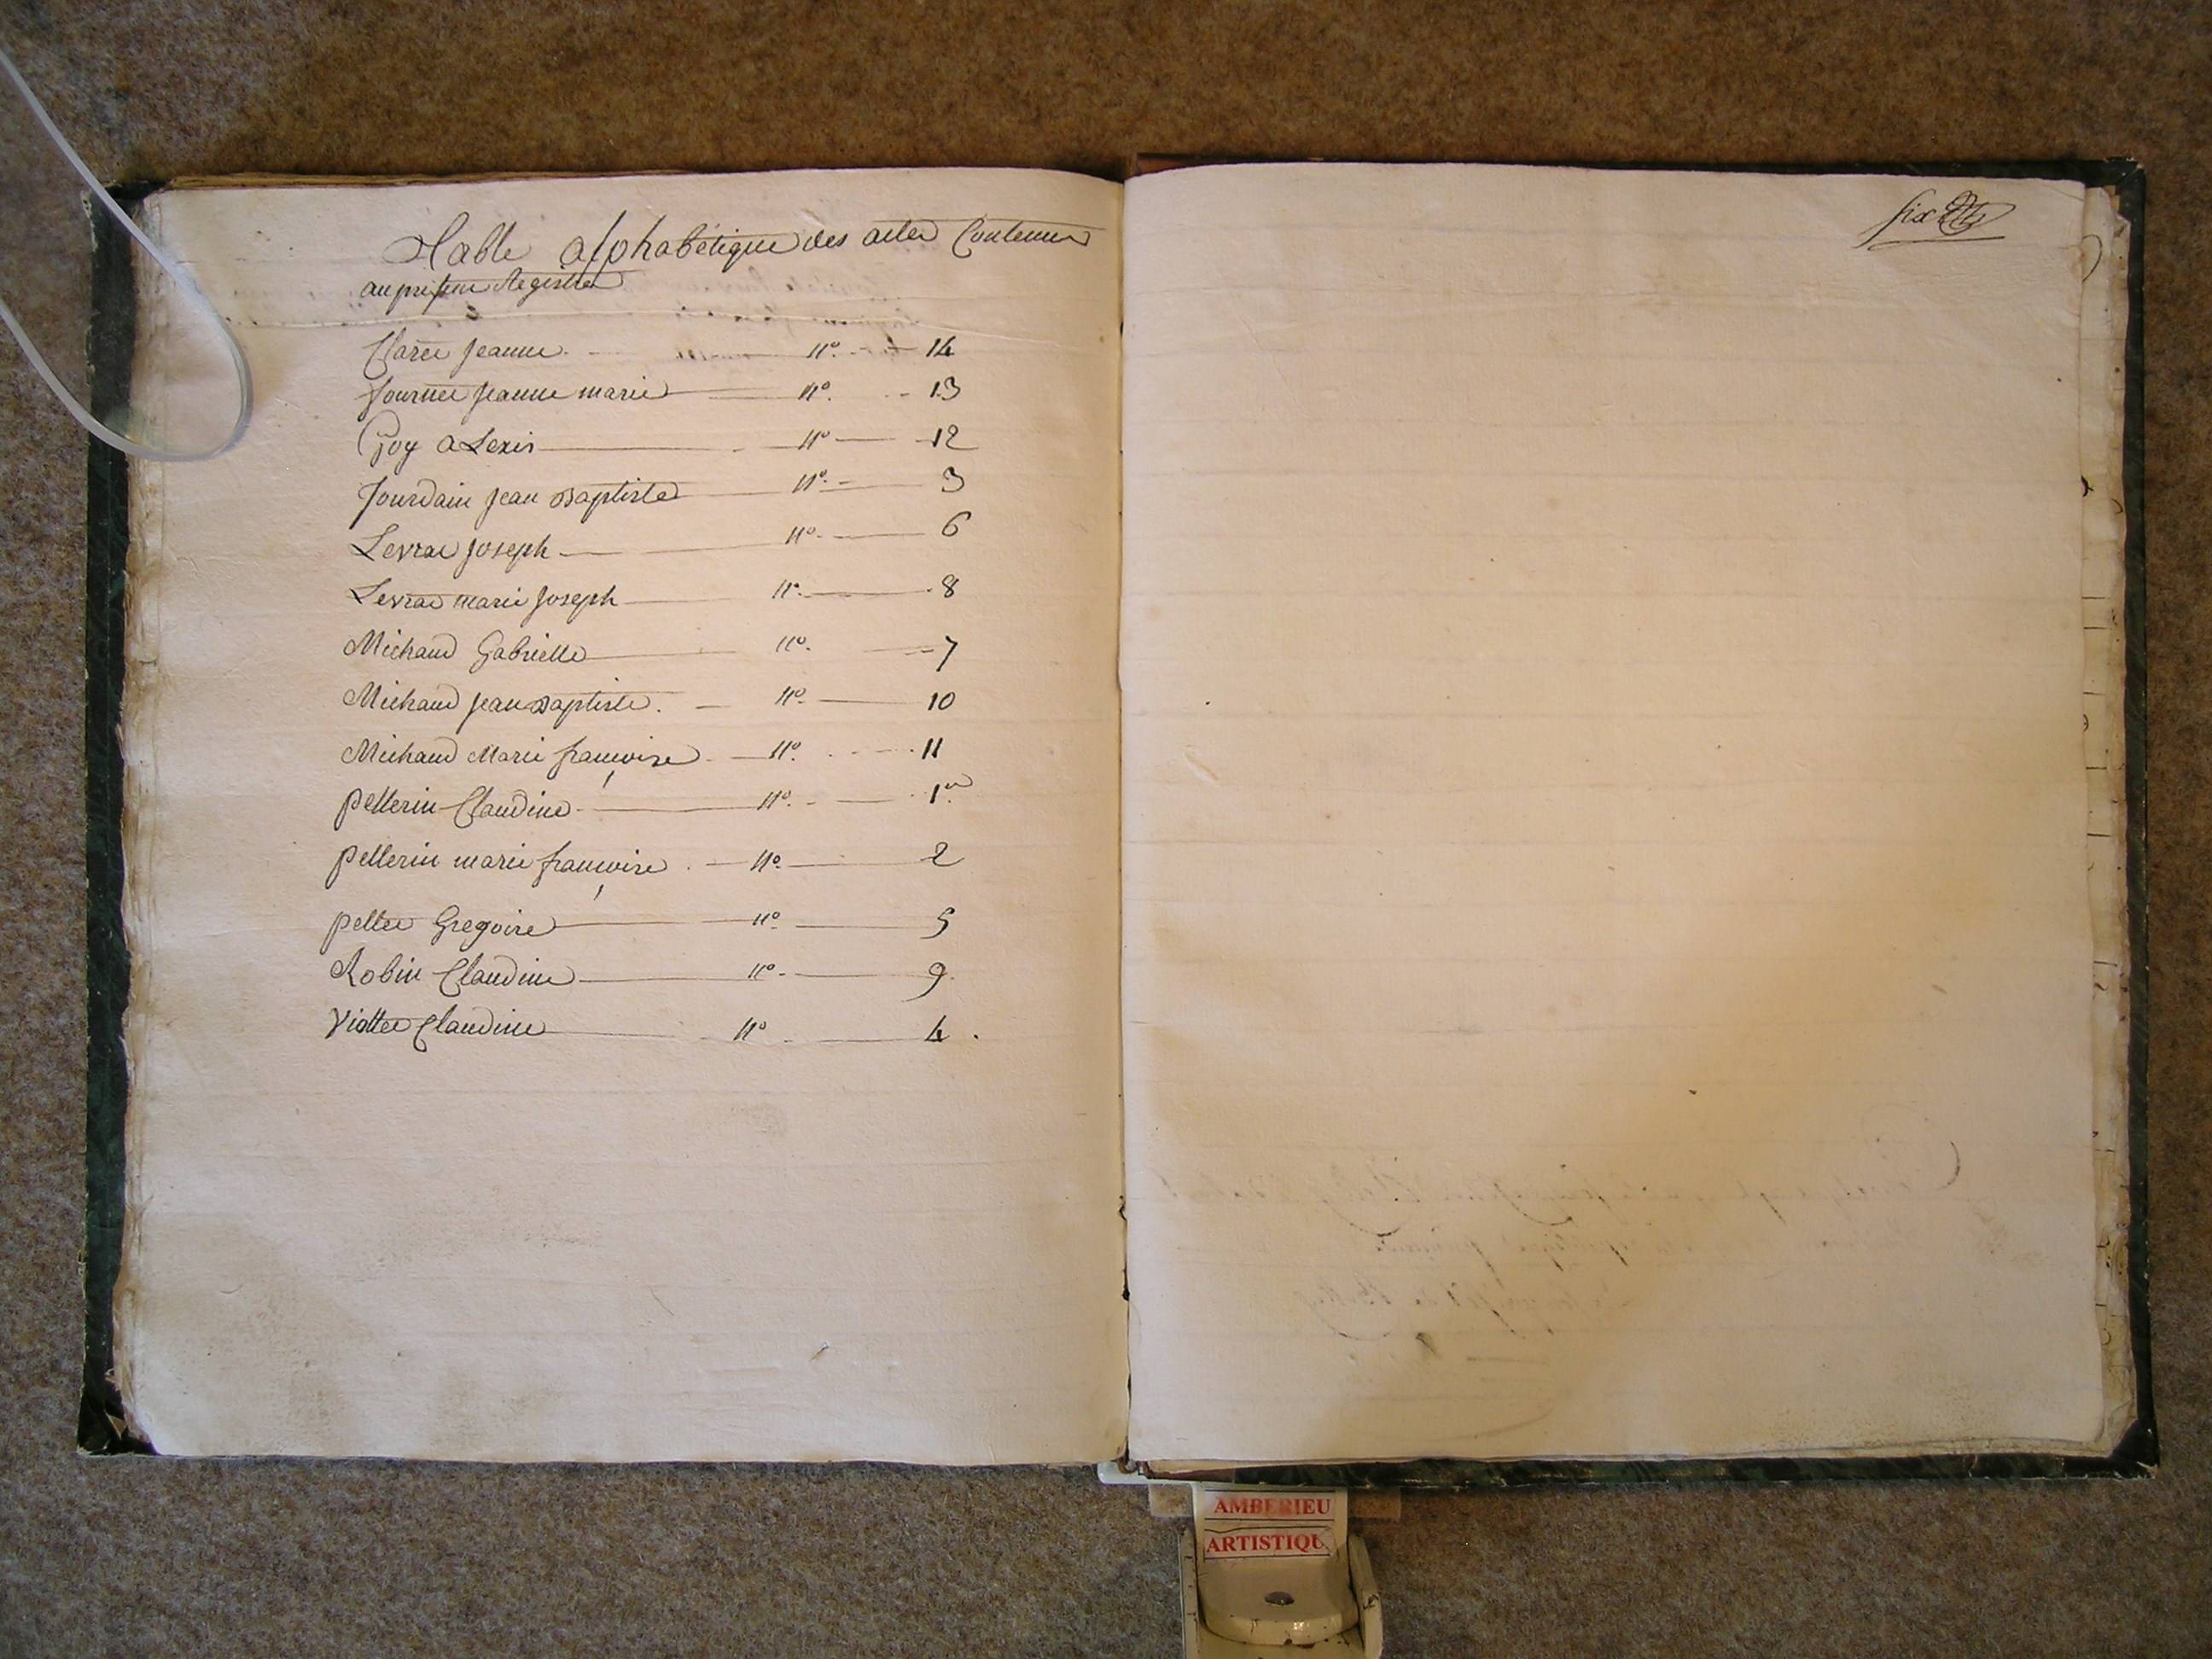 Table alphabétique des actes Contenus
au present Registre
Claret Jeanne. n°. 14
fournier Jeanne marie n°. 13
Goy alexis n° 12
Jourdain Jean Baptiste n°. 3
Levrat Joseph n°. 6
Levrat marie Joseph n°. 8
Michaud Gabrielle n°. 7
Michaud Jean Baptiste. n°. 10
Michaud Marie françoise n°. 11
pellerin Claudine n°. 1er
pellerin marie françoise n°. 2
pellet Gregoire n°. 5
Robin Claudine n°. 9
Viottet Claudine n° 4.
six
AMBERIEU
ARTISTIQU